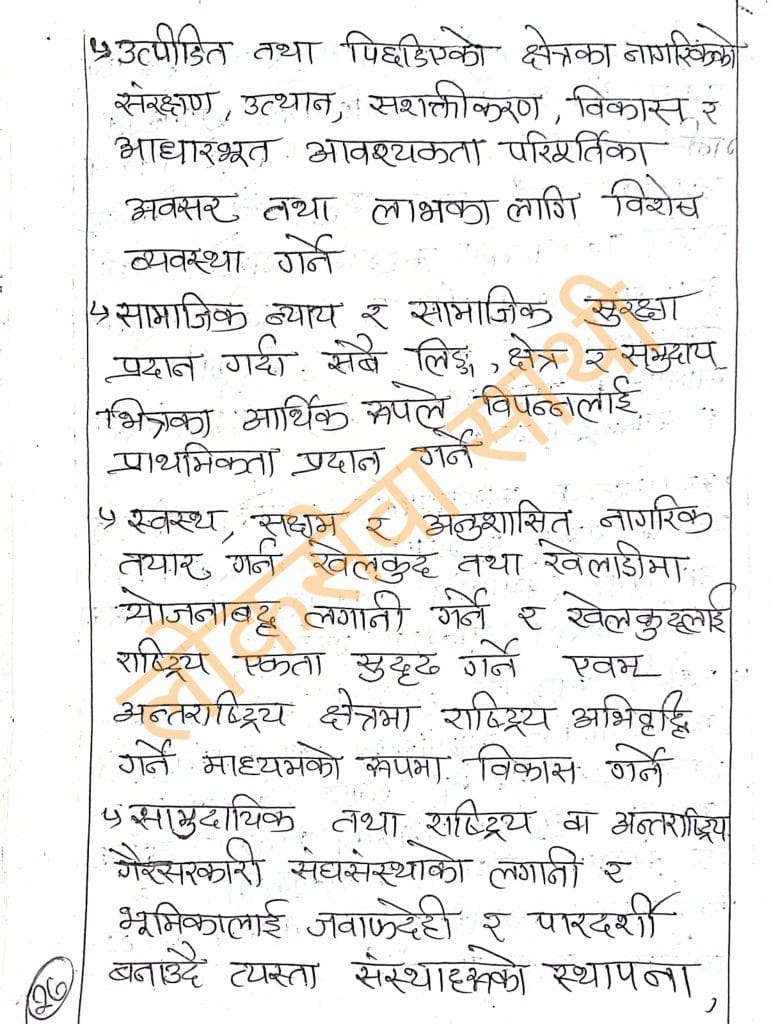 ↳ उत्पीडित तथा पिछडिएको क्षेत्रका नागरिकको
संरक्षण, उत्थान, सशक्तीकरण, विकास, र
आधारभूत आवश्यकता परिपूर्तिका
अवसर तथा लाभका लागि विशेष
व्यवस्था गर्ने
↳ सामाजिक न्याय र सामाजिक सुरक्षा
प्रदान गर्दा सबै लिङ्ग, क्षेत्र र समुदाय
भित्रका आर्थिक रूपले विपन्नलाई
प्राथमिकता प्रदान गर्ने
↳ स्वस्थ, सक्षम र अनुशासित नागरिक
तयार गर्न खेलकुद तथा खेलाडीमा
योजनाबद्ध लगानी गर्ने र खेलकुदलाई
राष्ट्रिय एकता सुदृढ गर्ने एवम
अन्तराष्ट्रिय क्षेत्रमा राष्ट्रिय अभिवृद्धि
गर्ने माध्यमको रूपमा विकास गर्ने
↳ सामुदायिक तथा राष्ट्रिय वा अन्तराष्ट्रिय
गैरसरकारी संघसंस्थाको लगानी र
भूमिकालाई जवाफदेही र पारदर्शी
बनाउदै त्यस्ता संस्थाहरूको स्थापना,
लोकसेवा साथी